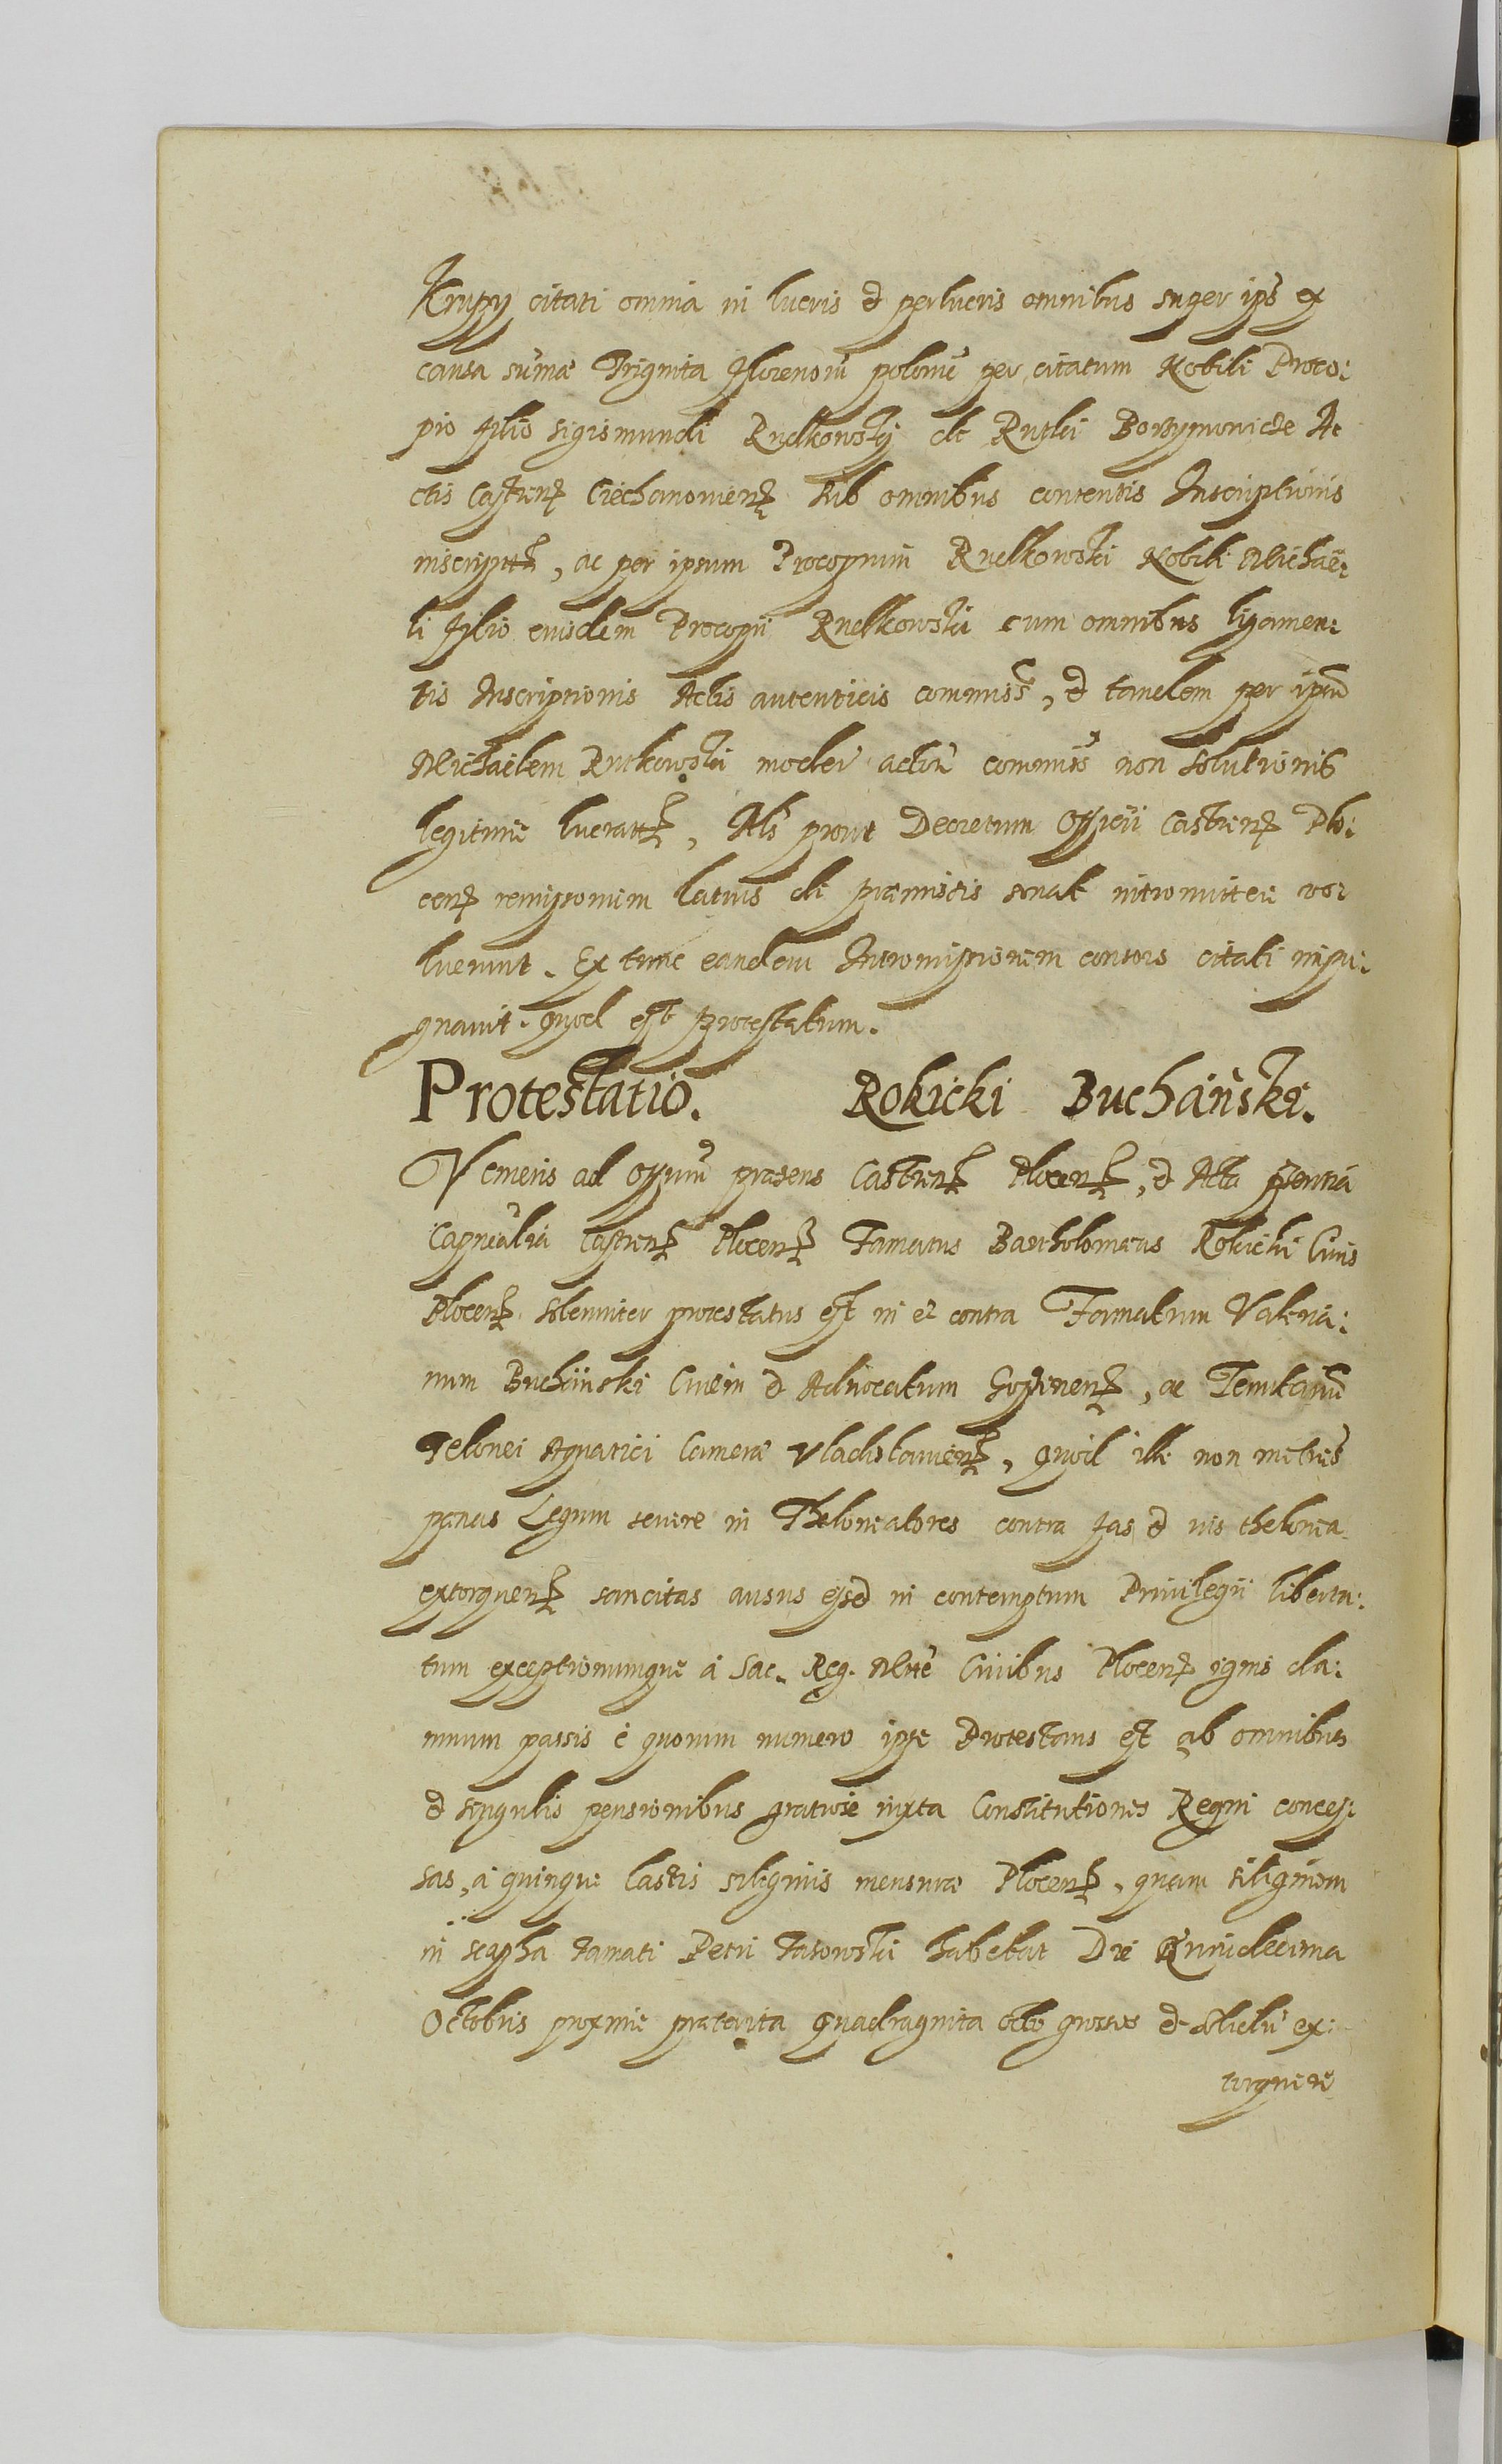 Krupy citati omnia in lucris et perlucris omnibus super ips ex
causa sumæ Triginta Florenorū poloni per citatum Nobili Proco:
pio filio Sigismundi Rudkowski de Rutki Borzymonicze A
ctis Castren Ciechanovien sub omnibus contentis Inscriptionis
inscript, ac per ipsum Procopium Rudkowski Nobili Michaë:
li filio eiusdem Procopii Rudkowski cum omnibus ligamen:
tis Inscriptionis Actis autenticis commiss, et tandem per ipsū
Michaelem Rutkowski moder actorū commiss non solutionis
legitime lucratt, Als prout Decretum Officii Castren Plo:
cen remissorium latius de præmissis sonat intromittere vo:
luerunt. Ex tunc eandem Intromissionem consors citati impu:
gnavit. quod est protestatum.
Protestatio. Rokicki Buchański.
Veniens ad officiū præsens Castren Plocen, et Acta præsentia
Capitalia Castren Plocen Famatus Bartholomæus Rokicki Civis
Plocen solenniter protestatus est in et contra Famatum Valeria:
num Buchiński Civem et Advocatum Gostinen, ac Tentariū
Telonei Aquatici Cameræ Vladislavien, quod ille non metues
pænas Legum severe in Theloneatores contra fas et ius thelonea
extorquen sancitas ausus esset in contemptum Privilegii liberta:
tum exceptionumque à Sac. Reg. Mtte Civibus Plocen ignis da:
mnum passis è quorum numero ipse Protestans est ab omnibus
et singulis pensionibus gratiose iuxta Constitutiones Regni conces:
sas, à quinque lastis siliginis mensuræ Plocen, quam siliginem
in scapha famati Petri Tasowski habebat Die Quindecima
Octobris proxime præterita quadraginta octo grossos et solidū ex:
torquere